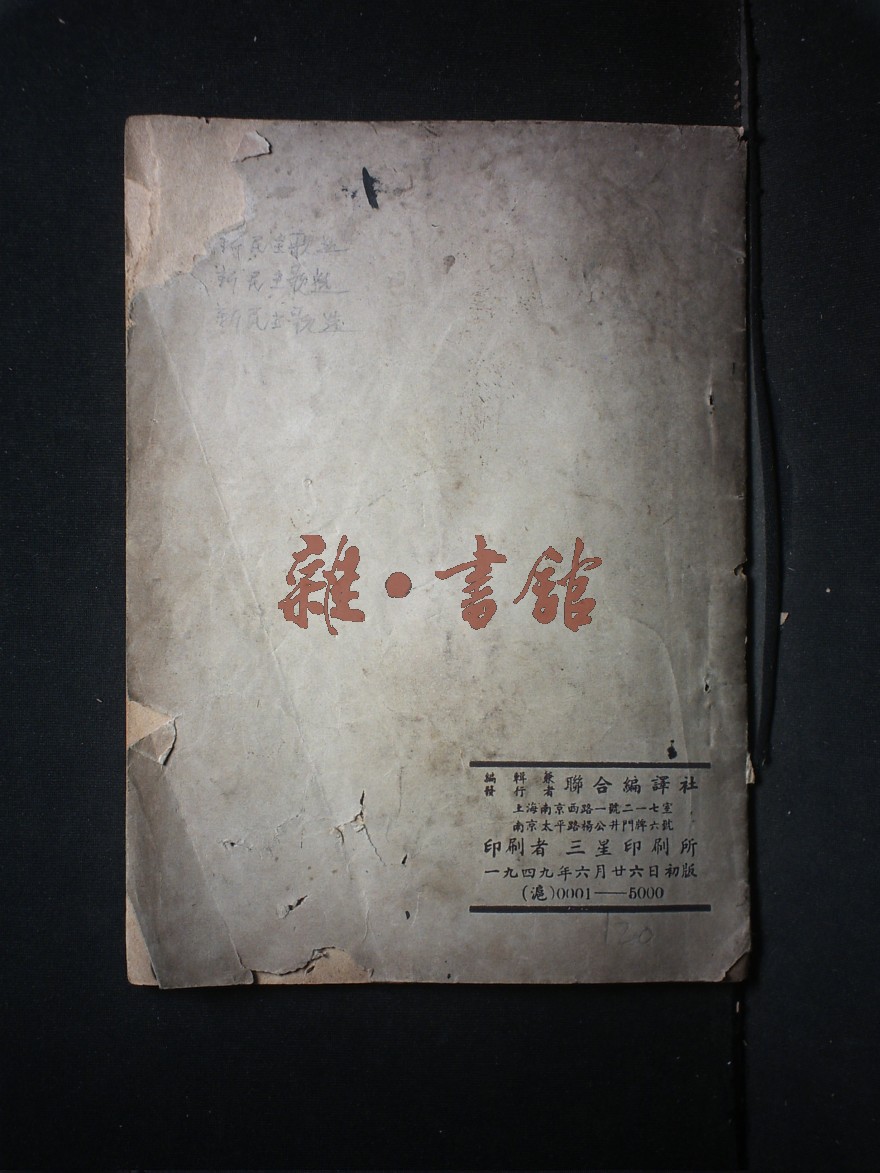 新民主歌選
新民主歌選
新民主歌選
雜·書館
編輯兼發行者 聯合編譯社
上海南京西路一號二一七室
南京太平路楊公井門牌六號
印刷者 三星印刷所
一九四九年六月廿六日初版
(滬)0001——5000
120